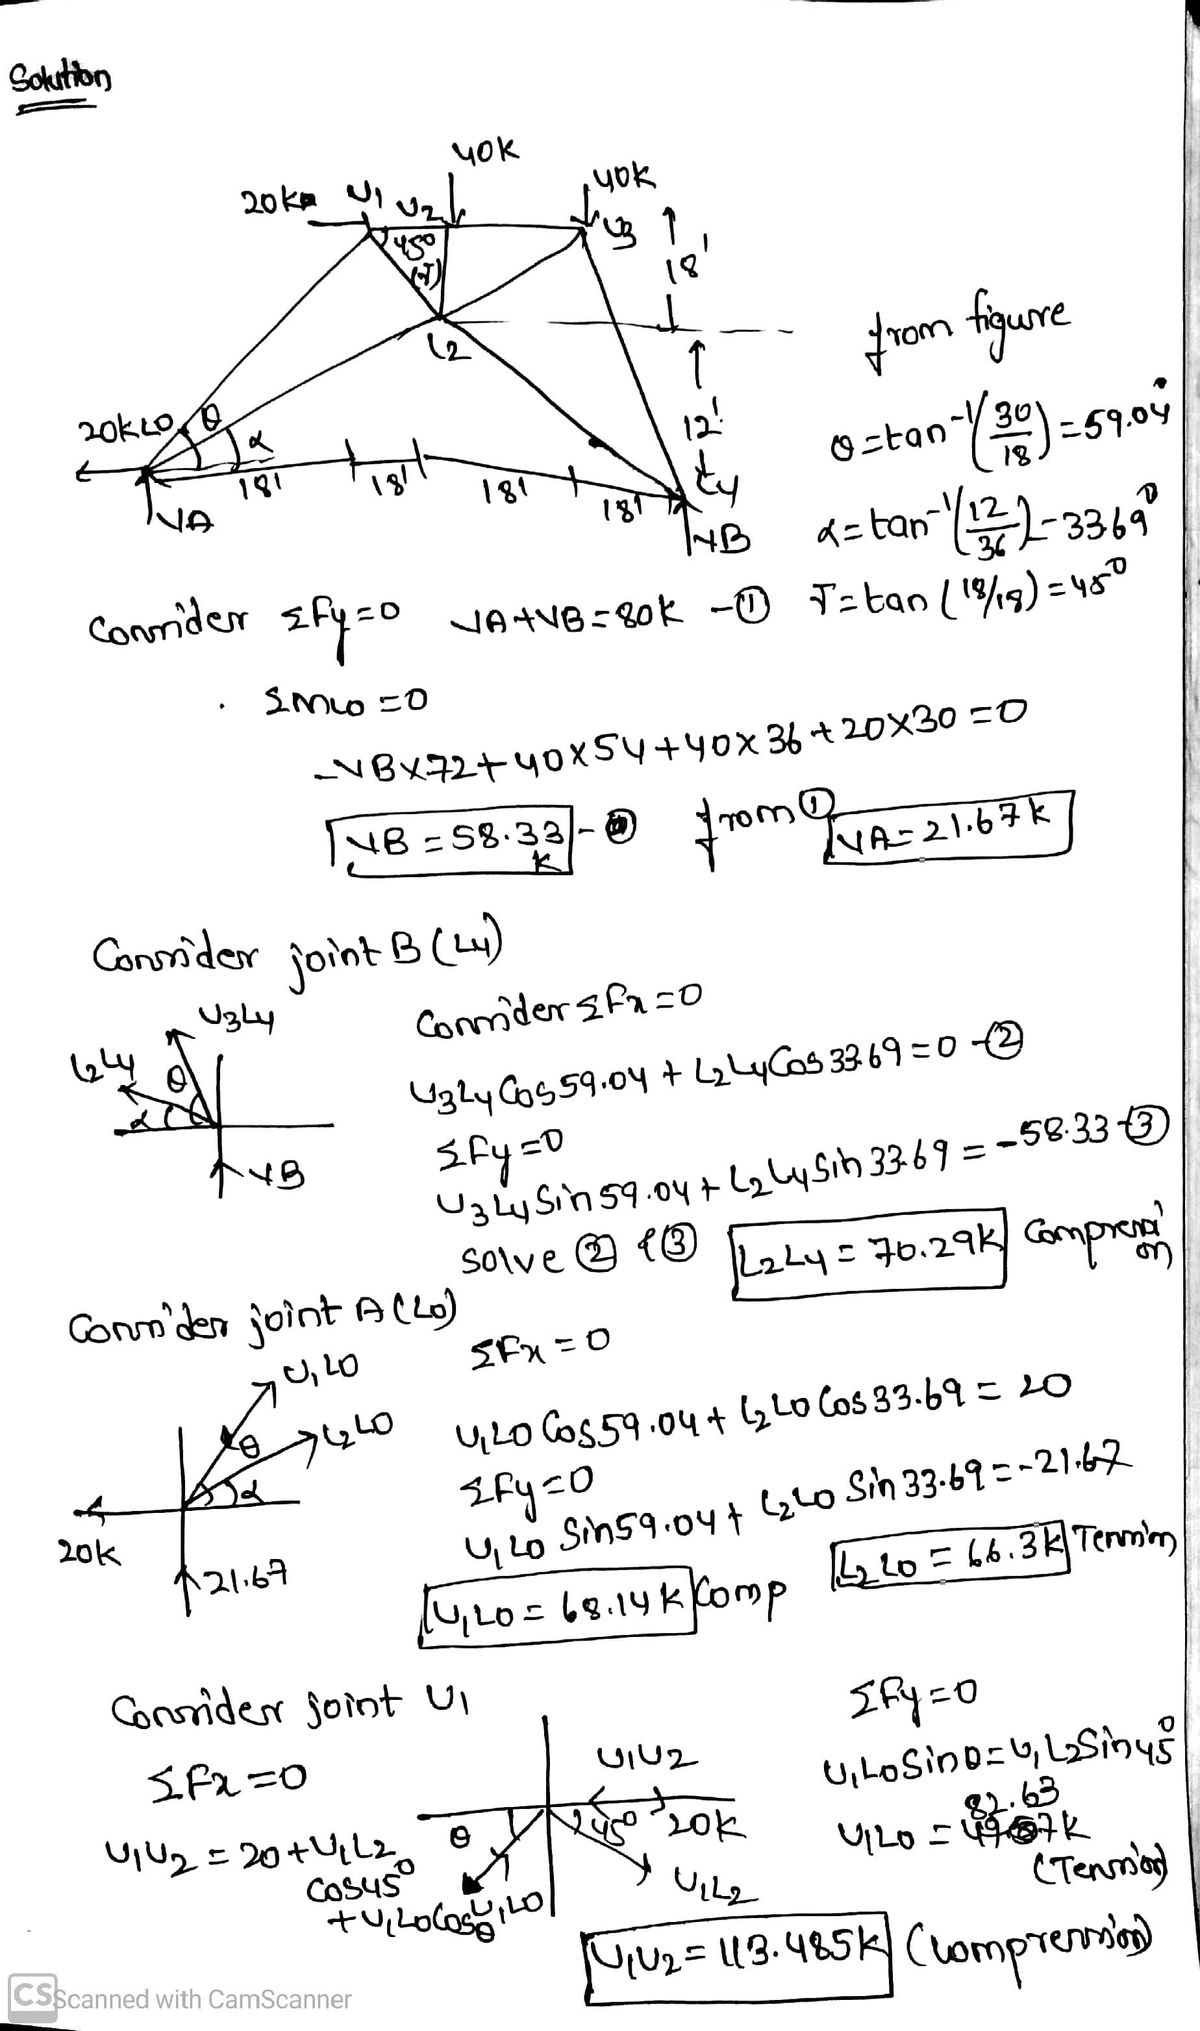 Solution
40K
20K U1 U2
40K
U3
45°
(T)
18'
L2
from figure
20K L0 θ α
12'
L4
θ=tan⁻¹(30/18)=59.04°
18' 18' 18' 18'
VA
VB
α=tan⁻¹(12/36)=33.69°
Consider ΣFy=0 VA+VB=80K -① T=tan(18/18)=45°
ΣML0=0
-VBX72+40X54+40X36+20X30=0
VB=58.33K - from① VA=21.67K
Consider joint B(L4)
U3L4
L2L4
θ
α
VB
Consider ΣFx=0
U3L4Cos59.04+L2L4Cos33.69=0 -②
ΣFy=0
U3L4Sin59.04+L2L4Sin33.69=-58.33-③
Solve ②&③ L2L4=70.29K Compression
Consider joint A(L0)
U1L0
θ
L2L0
α
20K
21.67
ΣFx=0
U1L0Cos59.04+L2L0Cos33.69=20
ΣFy=0
U1L0 Sin59.04+L2L0 Sin33.69=-21.67
U1L0=68.14K Comp L2L0=66.3K Tension
Consider joint U1
ΣFx=0
U1U2=20+U1L2
Cos45°
+U1L0Cosθ
U1U2
θ 45° 20K
U1L0
U1L2
ΣFy=0
U1L0Sinθ=U1L2Sin45°
82.63
U1L0=K
(Tension)
U1U2=113.485K (Compression)
CS Scanned with CamScanner